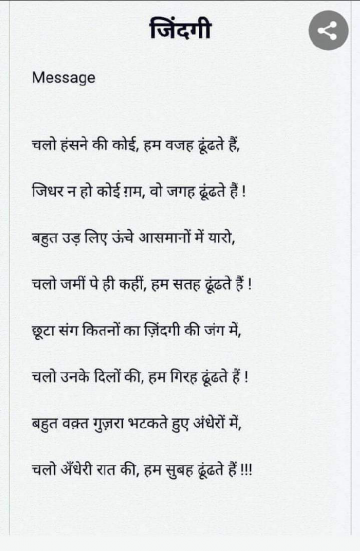 जिंदगी
Message
चलो हंसने की कोई, हम वजह ढूंढते हैं,
जिधर न हो कोई ग़म, वो जगह ढूंढते हैं !
बहुत उड़ लिए ऊंचे आसमानों में यारो,
चलो जमीं पे ही कहीं, हम सतह ढूंढते हैं !
छूटा संग कितनों का ज़िंदगी की जंग में,
चलो उनके दिलों की, हम गिरह ढूंढते हैं !
बहुत वक़्त गुज़रा भटकते हुए अंधेरों में,
चलो अँधेरी रात की, हम सुबह ढूंढते हैं !!!